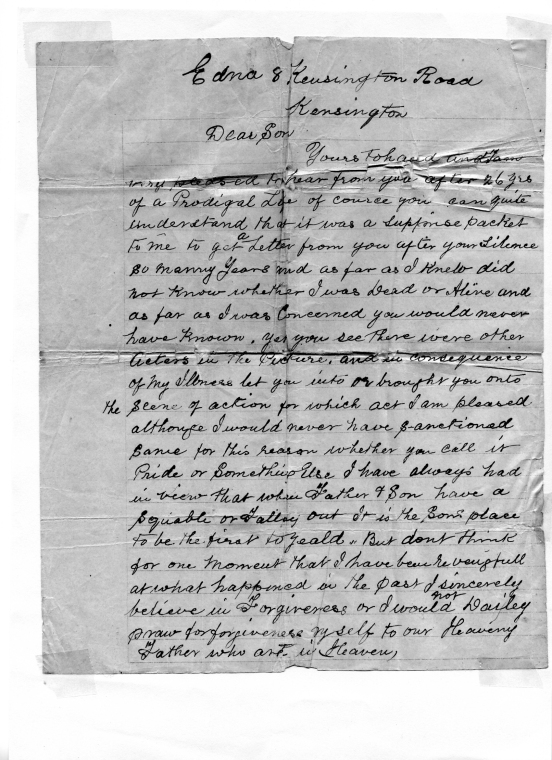 Edna 8 Kensington Road
Kensington
Dear Son
Yours to hand and I am
very pleased to hear from you after 26 yrs
of a Prodigal Life of cource you can quite
understand that it was a supprise packet
to me to get a Letter from you after your Silence
so manny Years and as far as I Knew did
not Know whether I was Dead or Alive and
as far as I was Concerned you would never
have Known, Yes you see there were other
Acters in the Picture, and in consequence
of My Illness let you into or brought you onto
the Scene of action for which act I am pleased
although I would never have sanctioned
same for this reason whether you call it
Pride or Something Else I have always had
in view that when Father & Son have a
Squable or Falley out It is the Sons place
to be the first to yeald. But dont think
for one moment that I have been revengfull
at what happened in the past I sincerely
believe in Forgiveness or I would not Dailey
pray for forgiveness myself to our Heavenly
Father who art in Heaven,